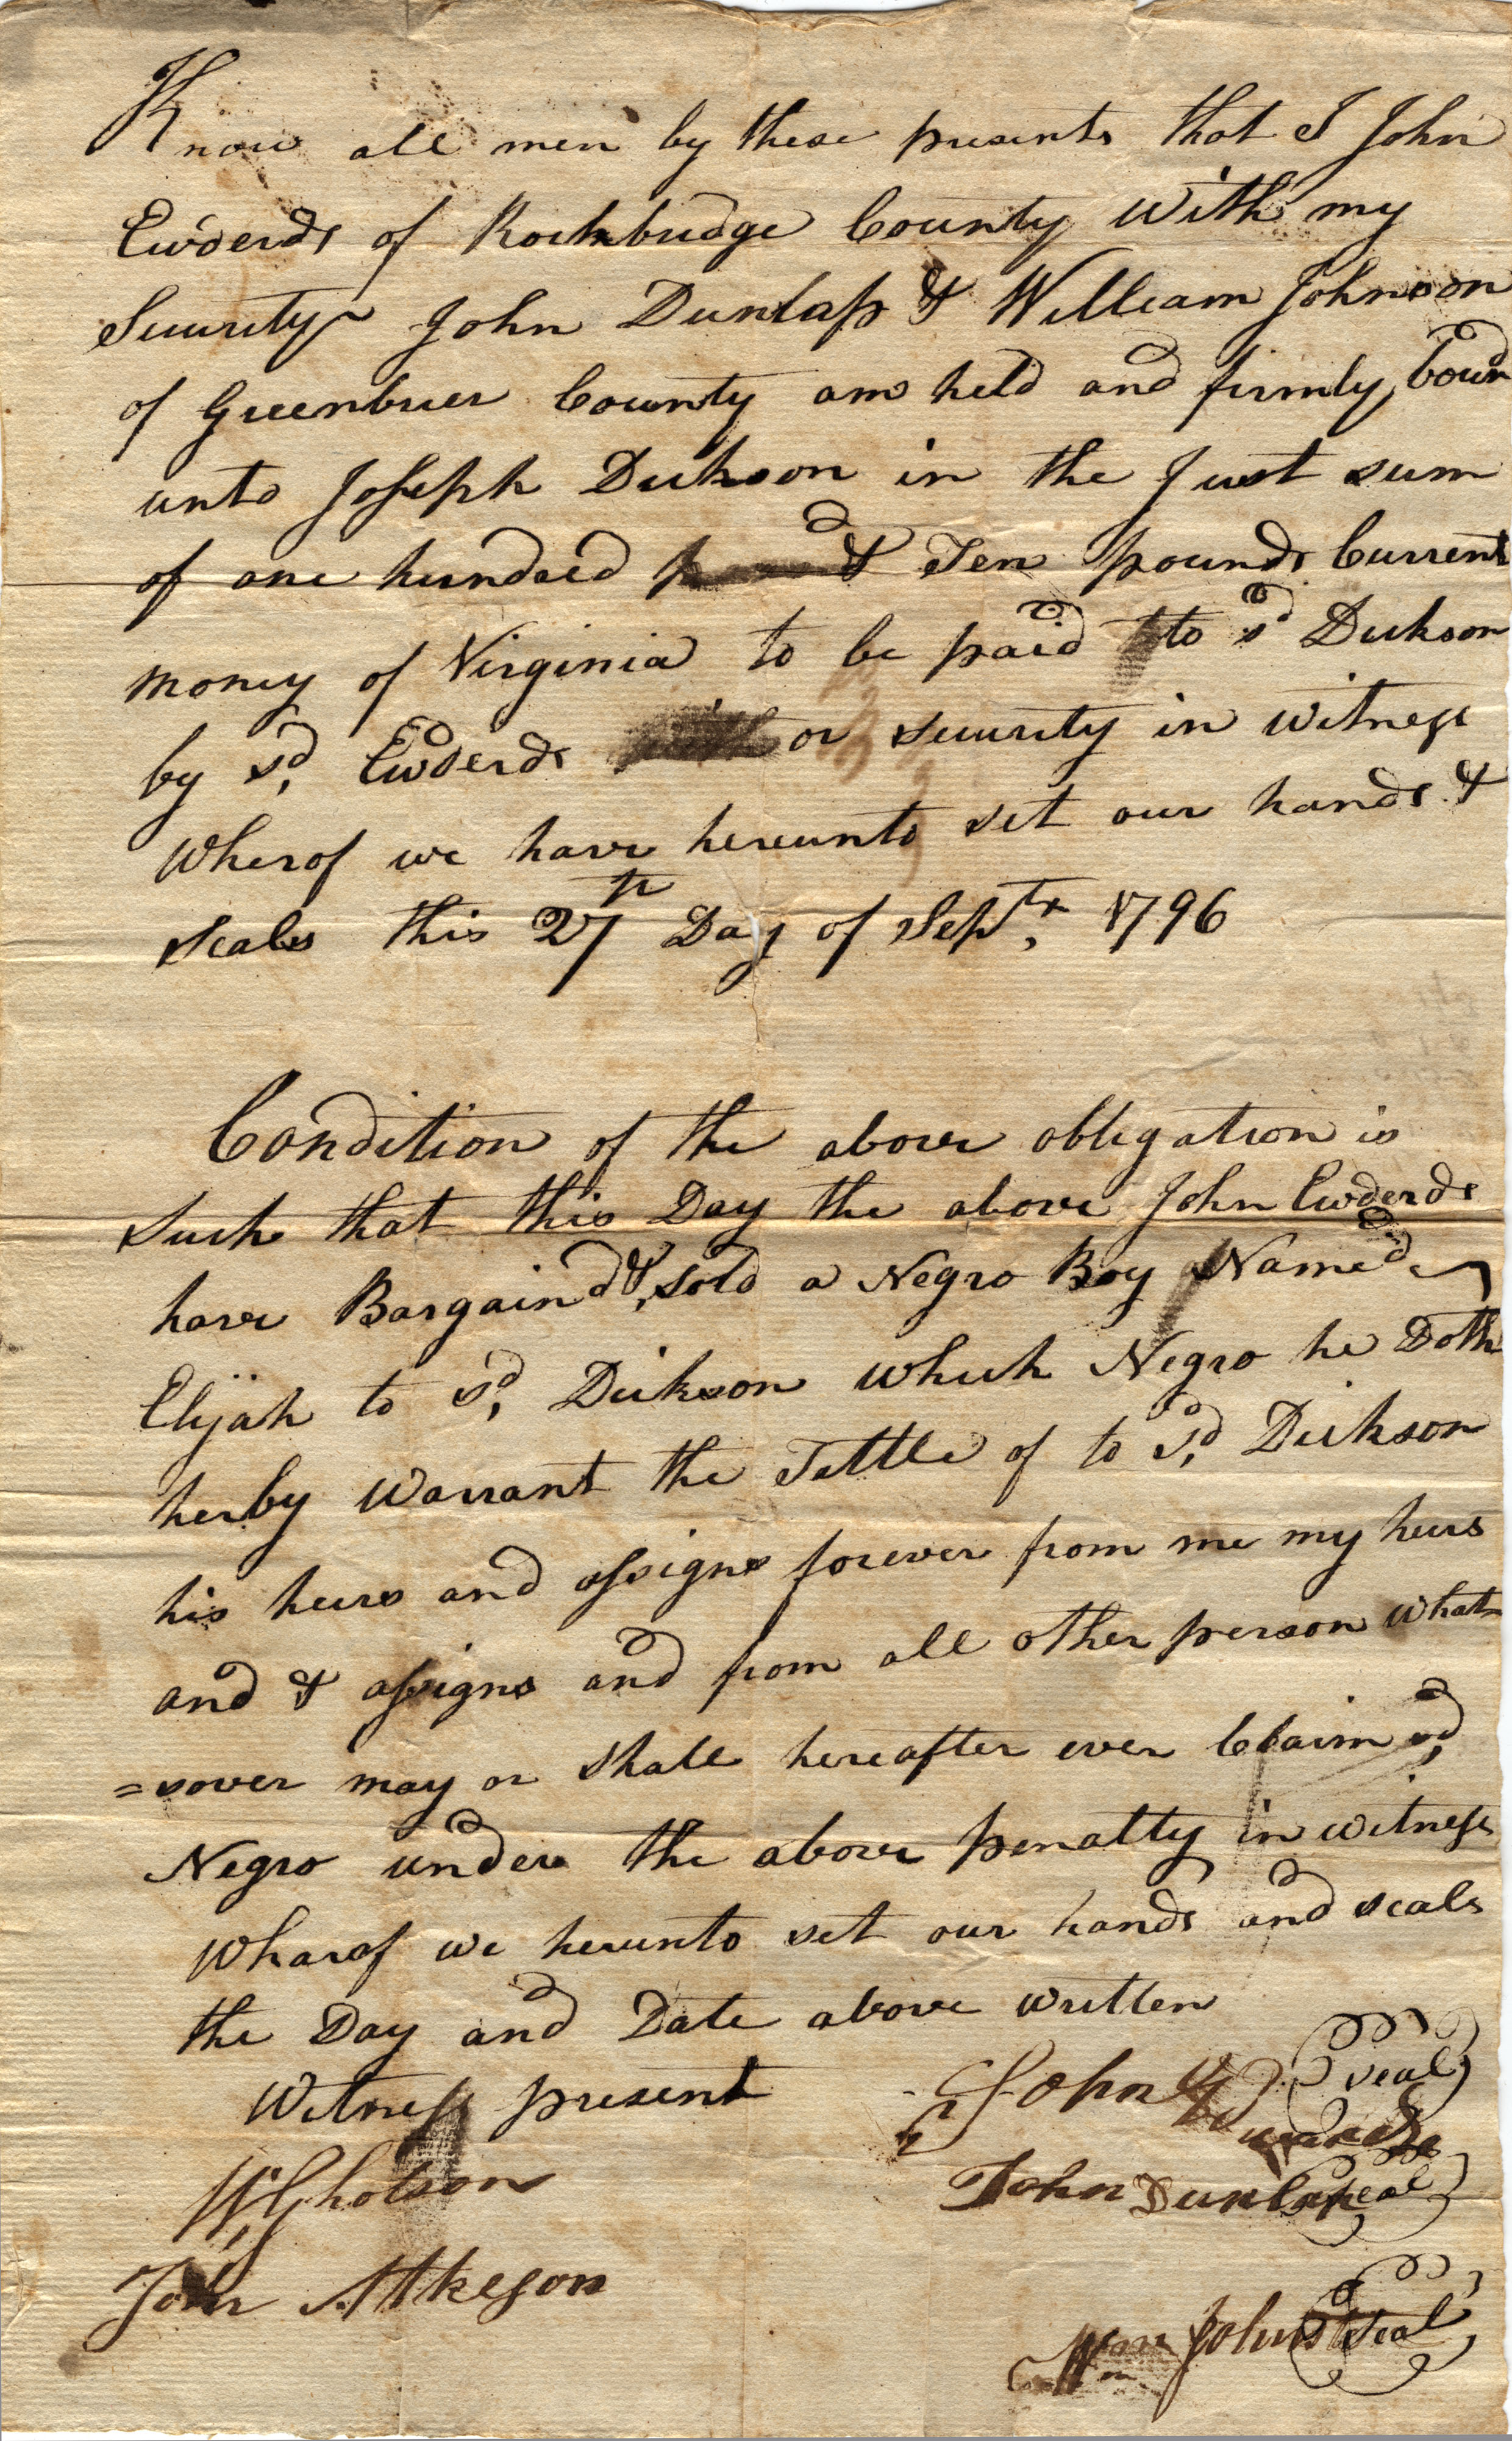 Know all men by these presents that I John
Ewderds of Rockbridge County With my
Security John Dunlap & William Johnson
of Greenbrier County am held and firmly bound
unto Joseph Dickson in the Just sum
of one hundred & Ten pounds Current
money of Virginia to be paid to sd Dickson
by sd, Ewderds or security in witness
Wherof we have hereunto set our hands &
seales this 27th Day of Septr, 1796
Condition of the above obligation is
Such that this Day the above John Ewderds
have Bargaind &, sold a Negro Boy Named
Elijah to sd, Dickson which Negro he Doth
herby Warrant the Tittle of to sd, Dickson
his heirs and assigns forever from me my heirs
and & assigns and from all other person what
=sover may or shall hereafter ever Claim sd,
Negro under the above penalty in witness
Wharof we herunto set our hands and seals
the Day and Date above written
Witness present
John Edwards seal
W, Gholson
John Dunlap seal
John Atkeson
Wm Johnston seal